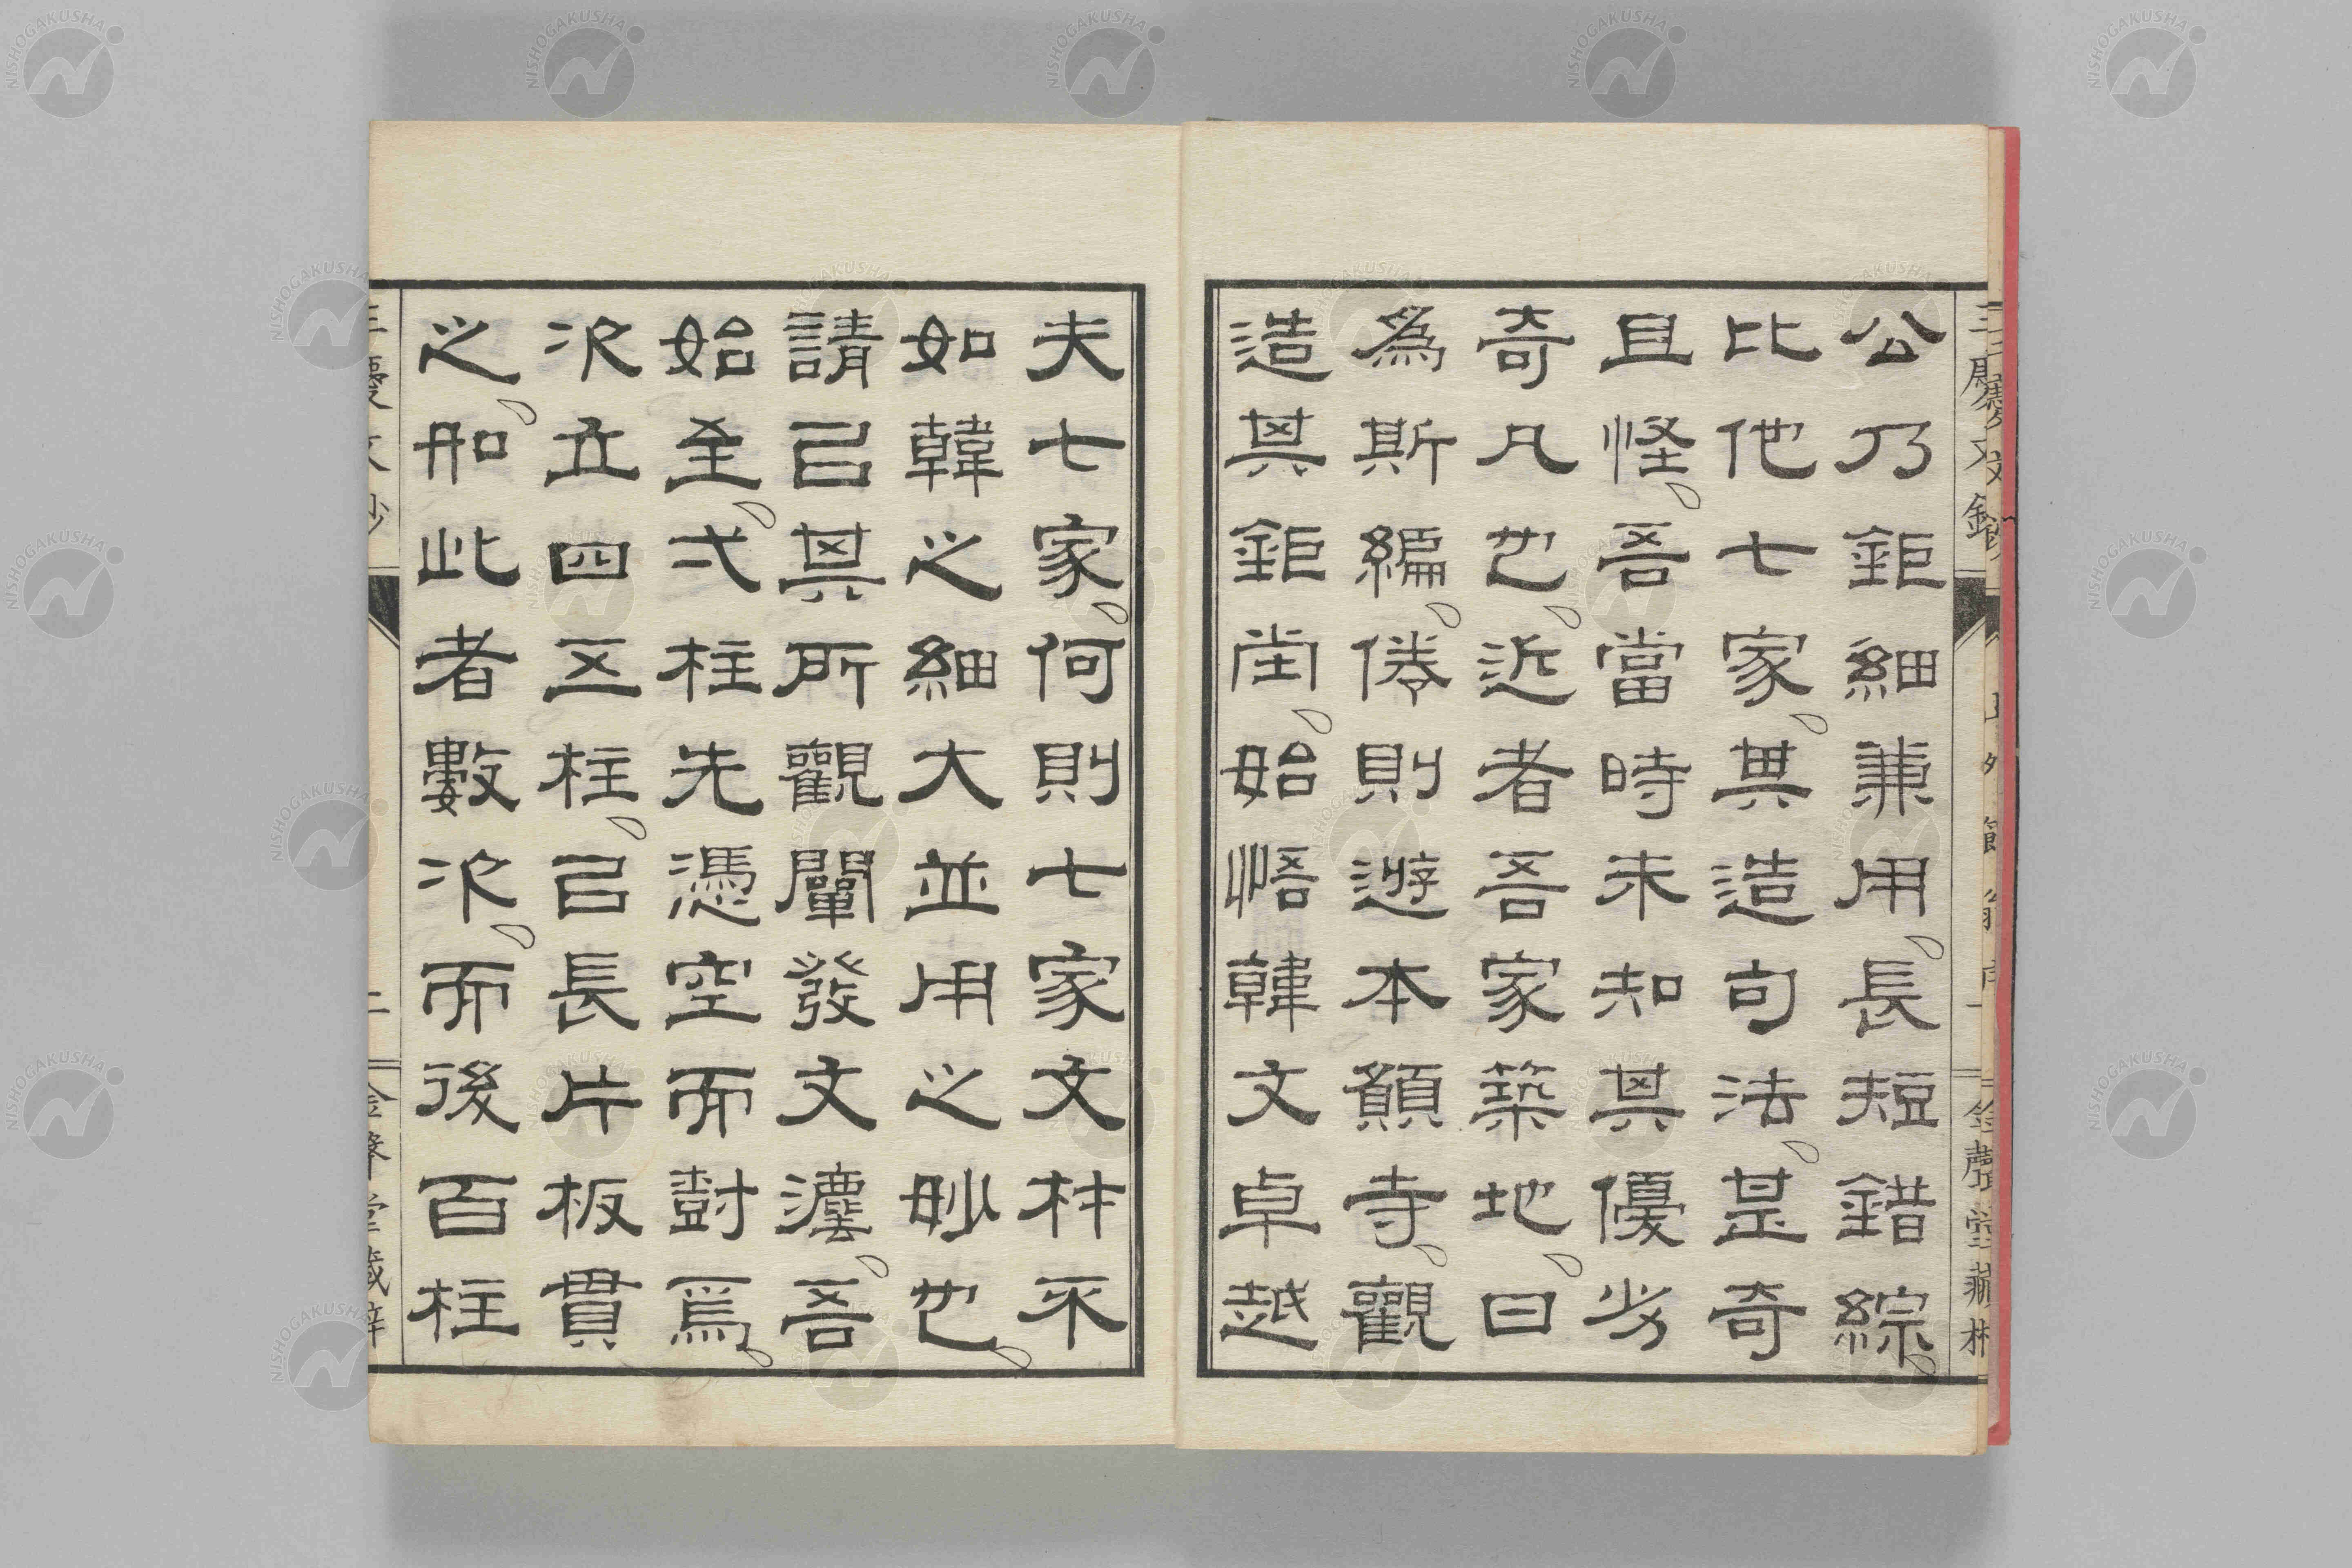 公乃鉅細兼用、長短錯綜、
比他七家、其造句法、是奇
且怪、吾當時未知其優劣
奇凡也、近者吾家築地、日
為斯編、倦則遊本願寺、觀
造其鉅坣、始悟韓文卓越
夫七家、何則七家文材不
如韓之細大並用之妙也、
請以其所觀闡發文灋、吾
始至、弌柱先憑空而尌焉、
次立四五柱、以長片板貫
之、如此者數次、而後百柱
金聲堂藏梓
NISHOGAKUSHA